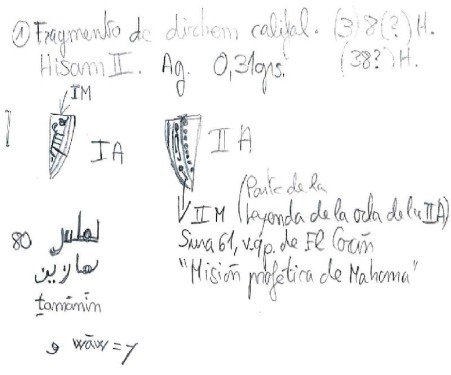 ① Fragmento de dirhem califal. (3)8(?)H.
Hisam II. Ag. 0,31grs. (38?)H.
IM
IA
IIA
IIM (Parte de la
Leyenda de la orla de la IIA)
80
Sura 61, v.9p. de El Corán
"Misión profética de Mahoma"
ṯamānīn
و wāw = y